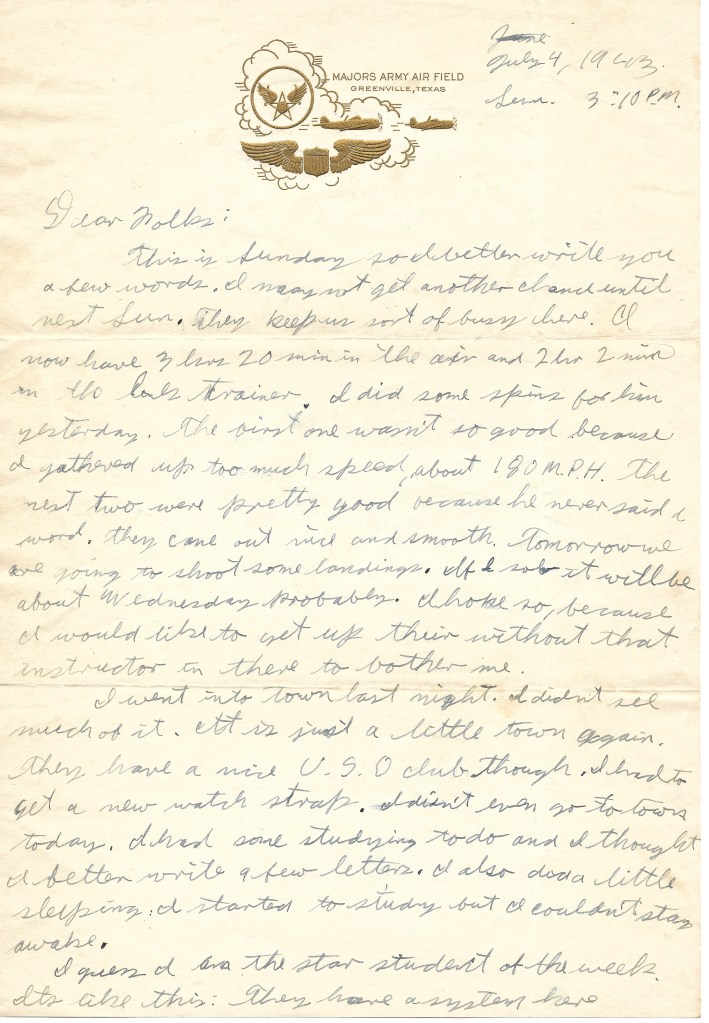 June
July 4, 1943.
Sun. 3:10 P.M.
MAJORS ARMY AIR FIELD
GREENVILLE, TEXAS
Dear Folks:
This is Sunday so I better write you
a few words. I may not get another chance until
next Sun. They keep us sort of busy here. I
now have 3 hrs 20 min in the air and 2 hr 2 min
in the link trainer. I did some spins for him
yesterday. The first one wasn't so good because
I gathered up too much speed, about 180 M.P.H. The
next two were pretty good because he never said a
word. They came out nice and smooth. Tomorrow we
are going to shoot some landings. If I solo it will be
about Wednesday probably. I hope so, because
I would like to get up their without that
instructor in there to bother me.
I went into town last night. I didn't see
much of it. It is just a little town again.
They have a nice U.S.O club though. I had to
get a new watch strap. I didn't even go to town
today. I had some studying to do and I thought
I better write a few letters. I also did a little
sleeping. I started to study but I couldn't stay
awake.
I guess I am the star student of the week.
Its like this: They have a system here